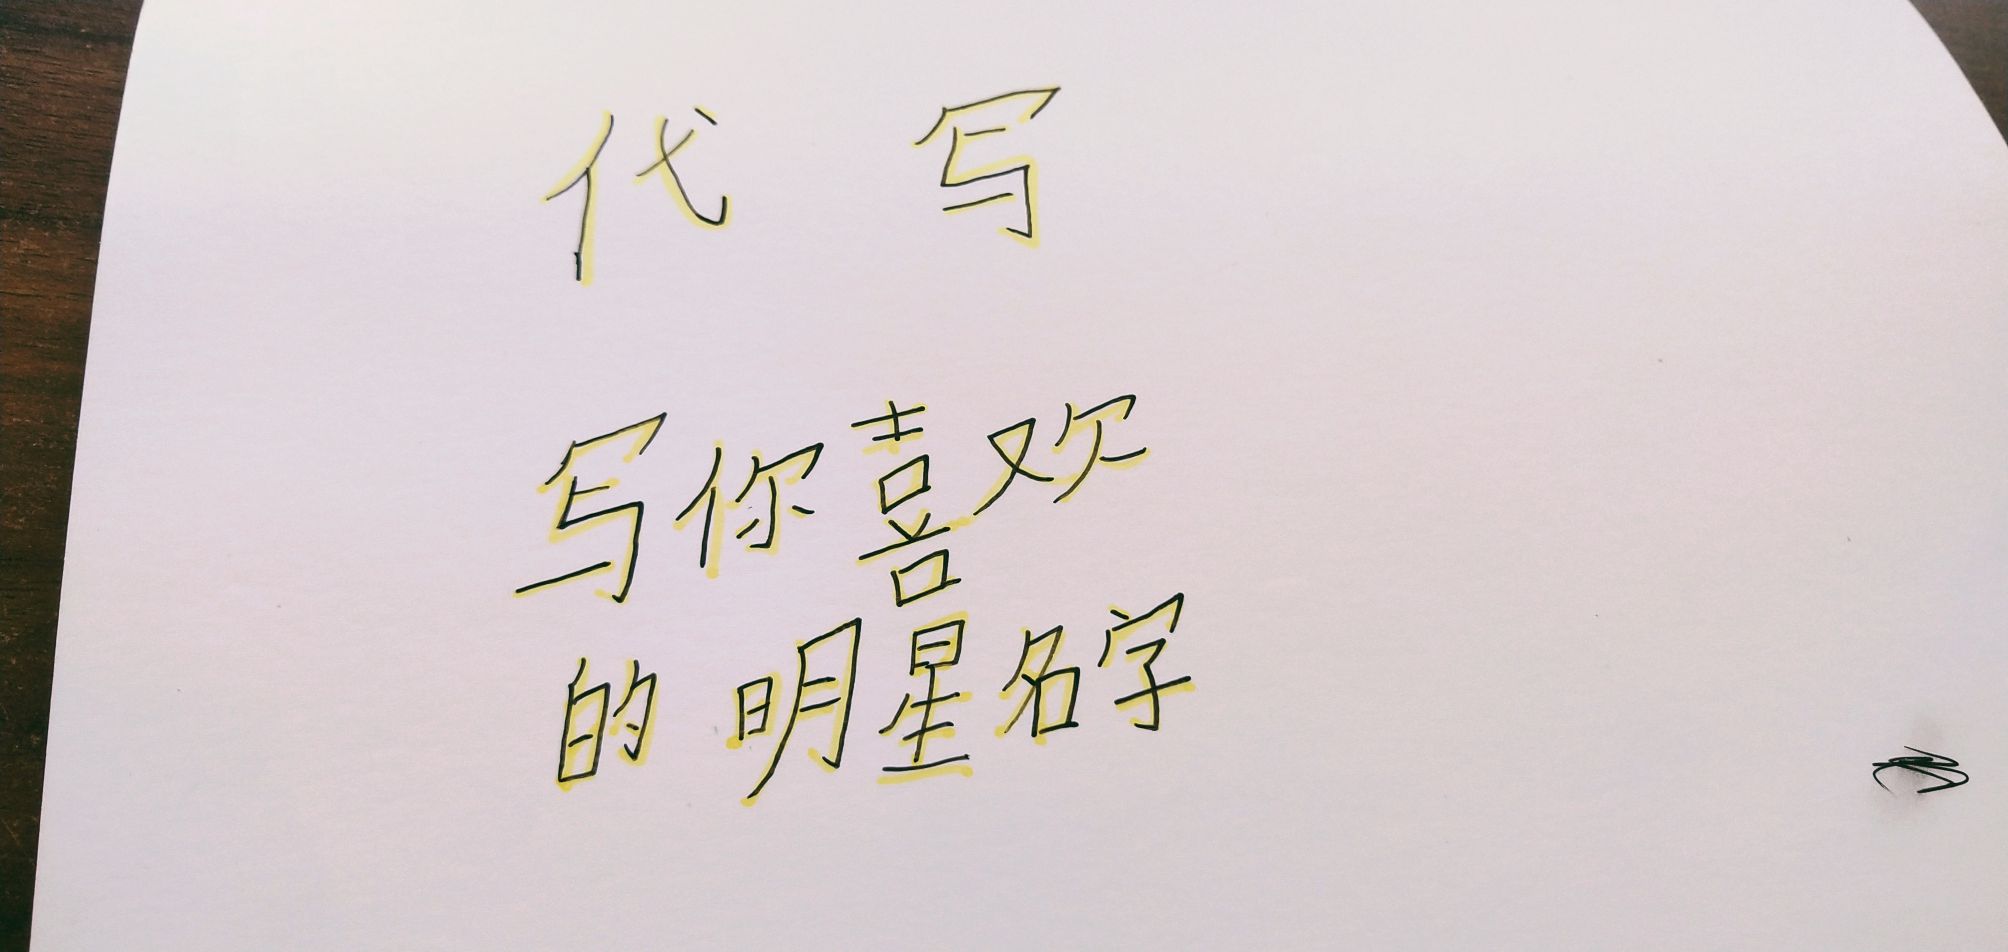 代写
写你喜欢
的明星名字